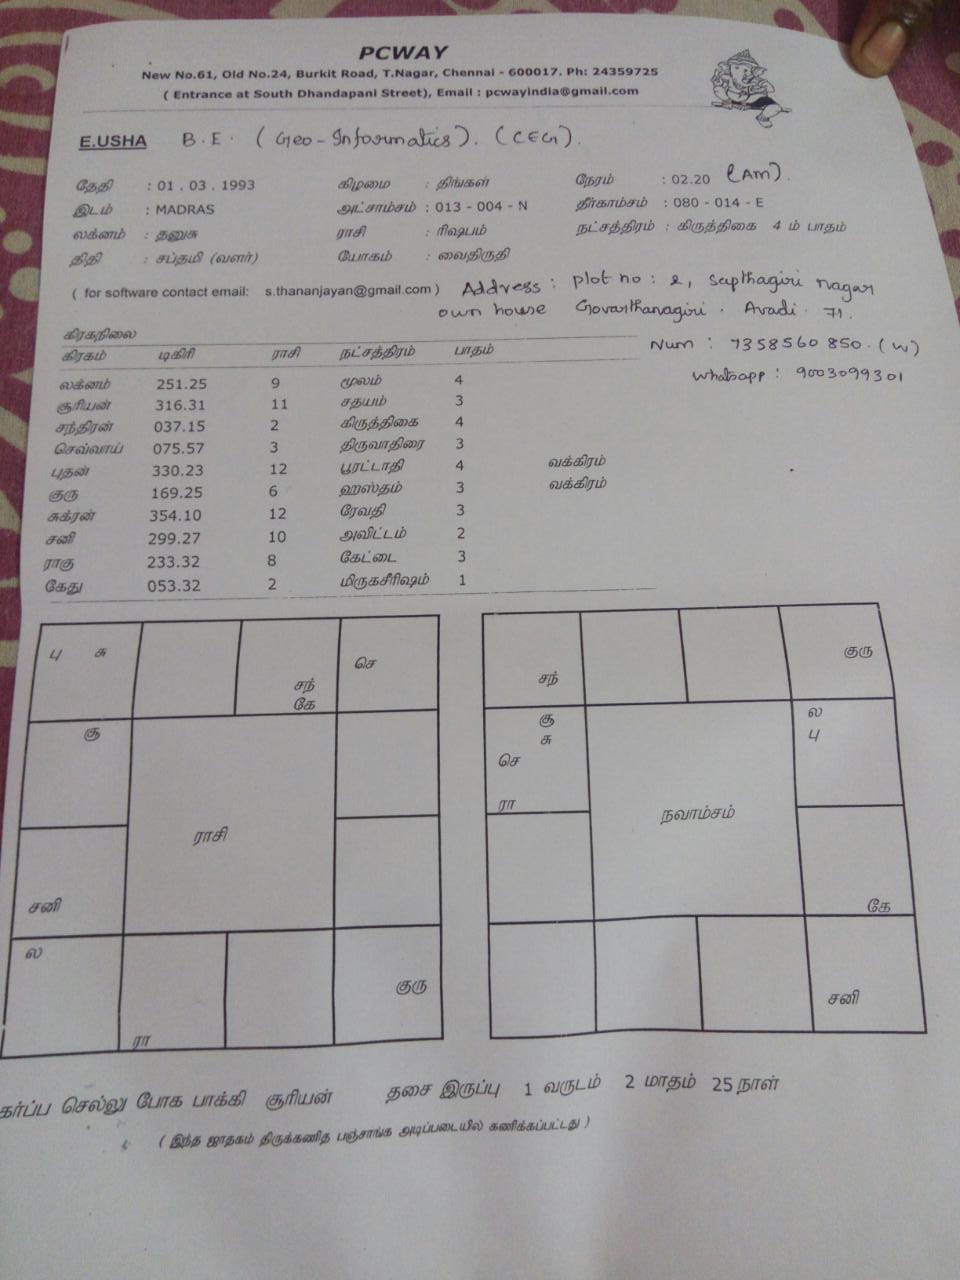 PCWAY
New No.61, Old No.24, Burkit Road, T.Nagar, Chennai - 600017. Ph: 24359725
( Entrance at South Dhandapani Street), Email : pcwayindia@gmail.com
E.USHA B.E. (Geo-Informatics). (CEG).
தேதி : 01 . 03 . 1993 கிழமை : திங்கள் நேரம் : 02.20 (AM).
இடம் : MADRAS அட்சாம்சம் : 013 - 004 - N தீர்காம்சம் : 080 - 014 - E
லக்னம் : தனுசு ராசி : ரிஷபம் நட்சத்திரம் : கிருத்திகை 4 ம் பாதம்
திதி : சப்தமி (வளர்) யோகம் : வைதிருதி
( for software contact email: s.thananjayan@gmail.com ) Address : plot no : 2, Sapthagiri nagar
own house Govarthanagiri . Avadi . 71.
கிரகநிலை
கிரகம் டிகிரி ராசி நட்சத்திரம் பாதம்
Num : 7358560850. (W)
whatsapp : 9003099301
லக்னம் 251.25 9 மூலம் 4
சூரியன் 316.31 11 சதயம் 3
சந்திரன் 037.15 2 கிருத்திகை 4
செவ்வாய் 075.57 3 திருவாதிரை 3
புதன் 330.23 12 பூரட்டாதி 4 வக்கிரம்
குரு 169.25 6 ஹஸ்தம் 3 வக்கிரம்
சுக்ரன் 354.10 12 ரேவதி 3
சனி 299.27 10 அவிட்டம் 2
ராகு 233.32 8 கேட்டை 3
கேது 053.32 2 மிருகசீரிஷம் 1
பு சு
சந்
கே
செ
சூ
ராசி
சனி
ல
ரா
குரு
சந்
குரு
சூ
சு
செ
ரா
ல
பு
நவாம்சம்
கே
சனி
கர்ப்ப செல்லு போக பாக்கி சூரியன் தசை இருப்பு 1 வருடம் 2 மாதம் 25 நாள்
( இந்த ஜாதகம் திருக்கணித பஞ்சாங்க அடிப்படையில் கணிக்கப்பட்டது )